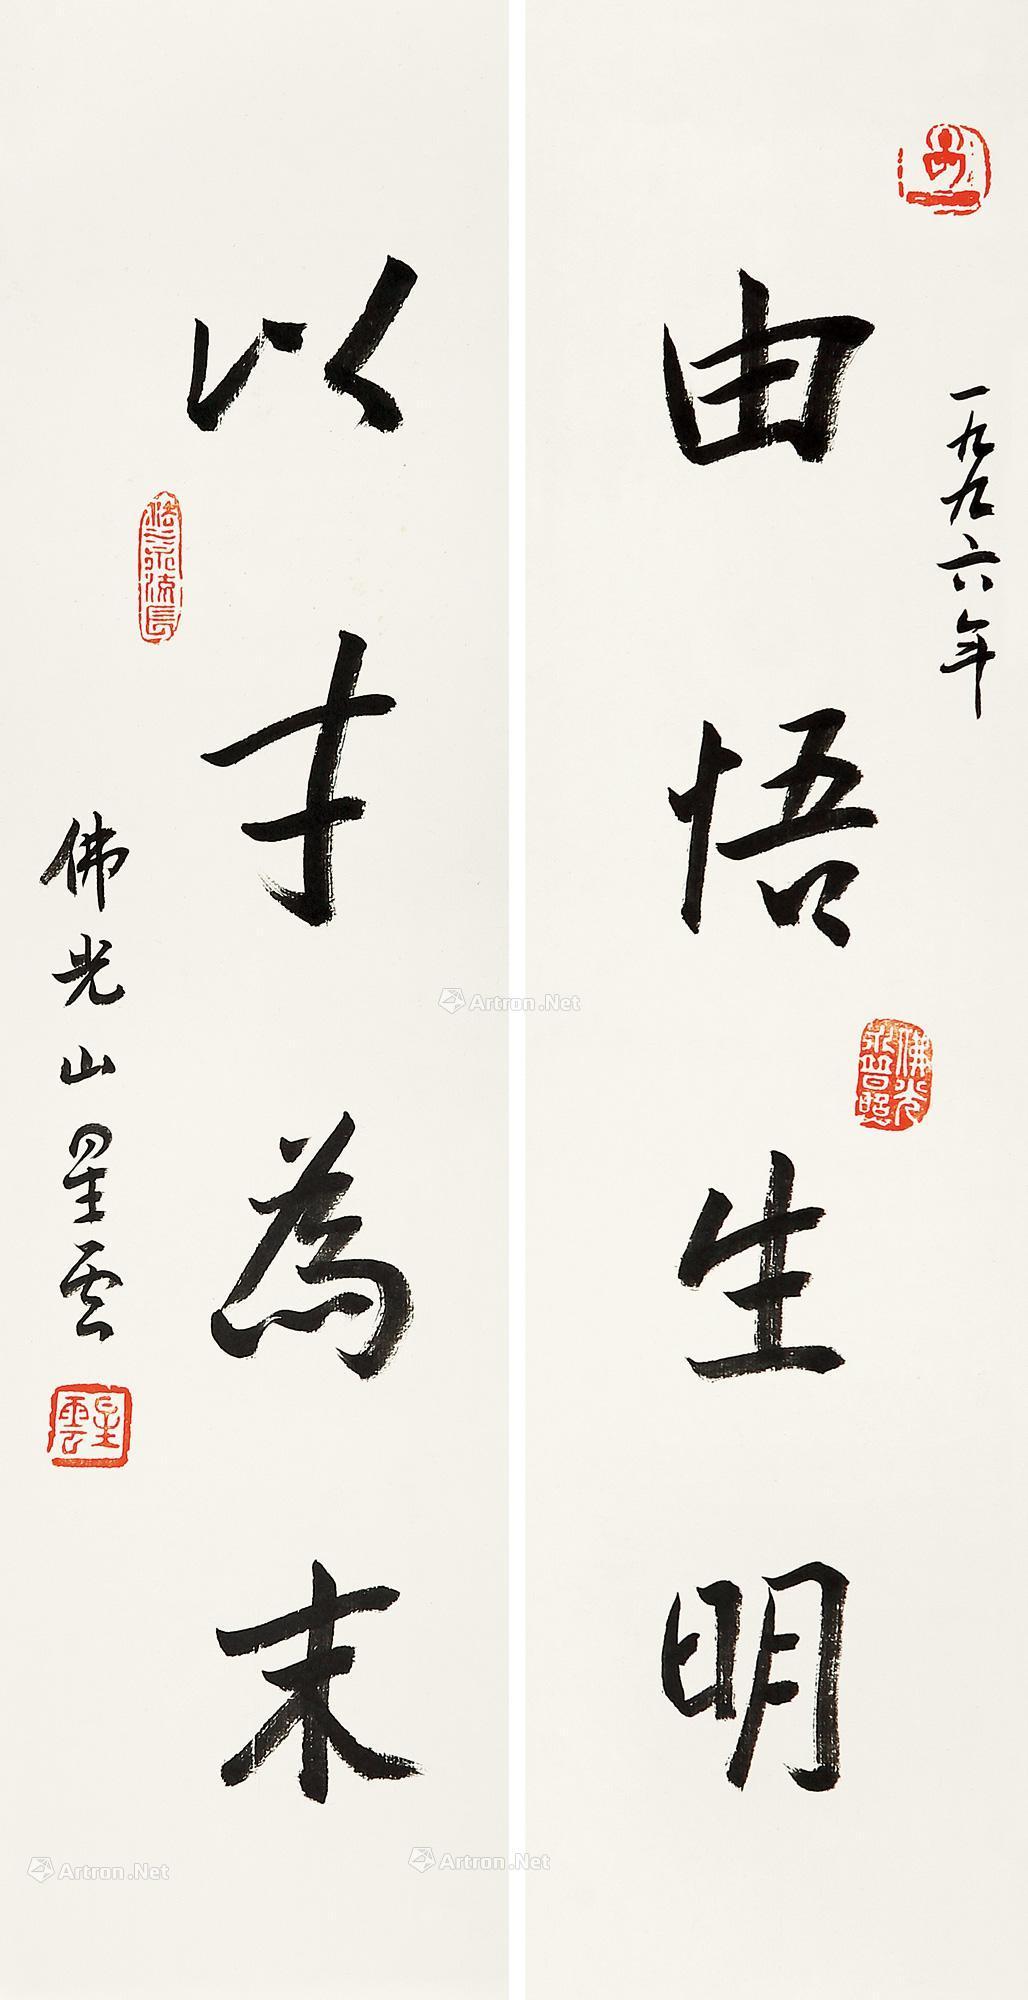 一九九六年
由悟生明
佛光
永普照
以才為末
法水流長
佛光山星雲
星雲
Artron.Net
Artron.Net
Artron.Net